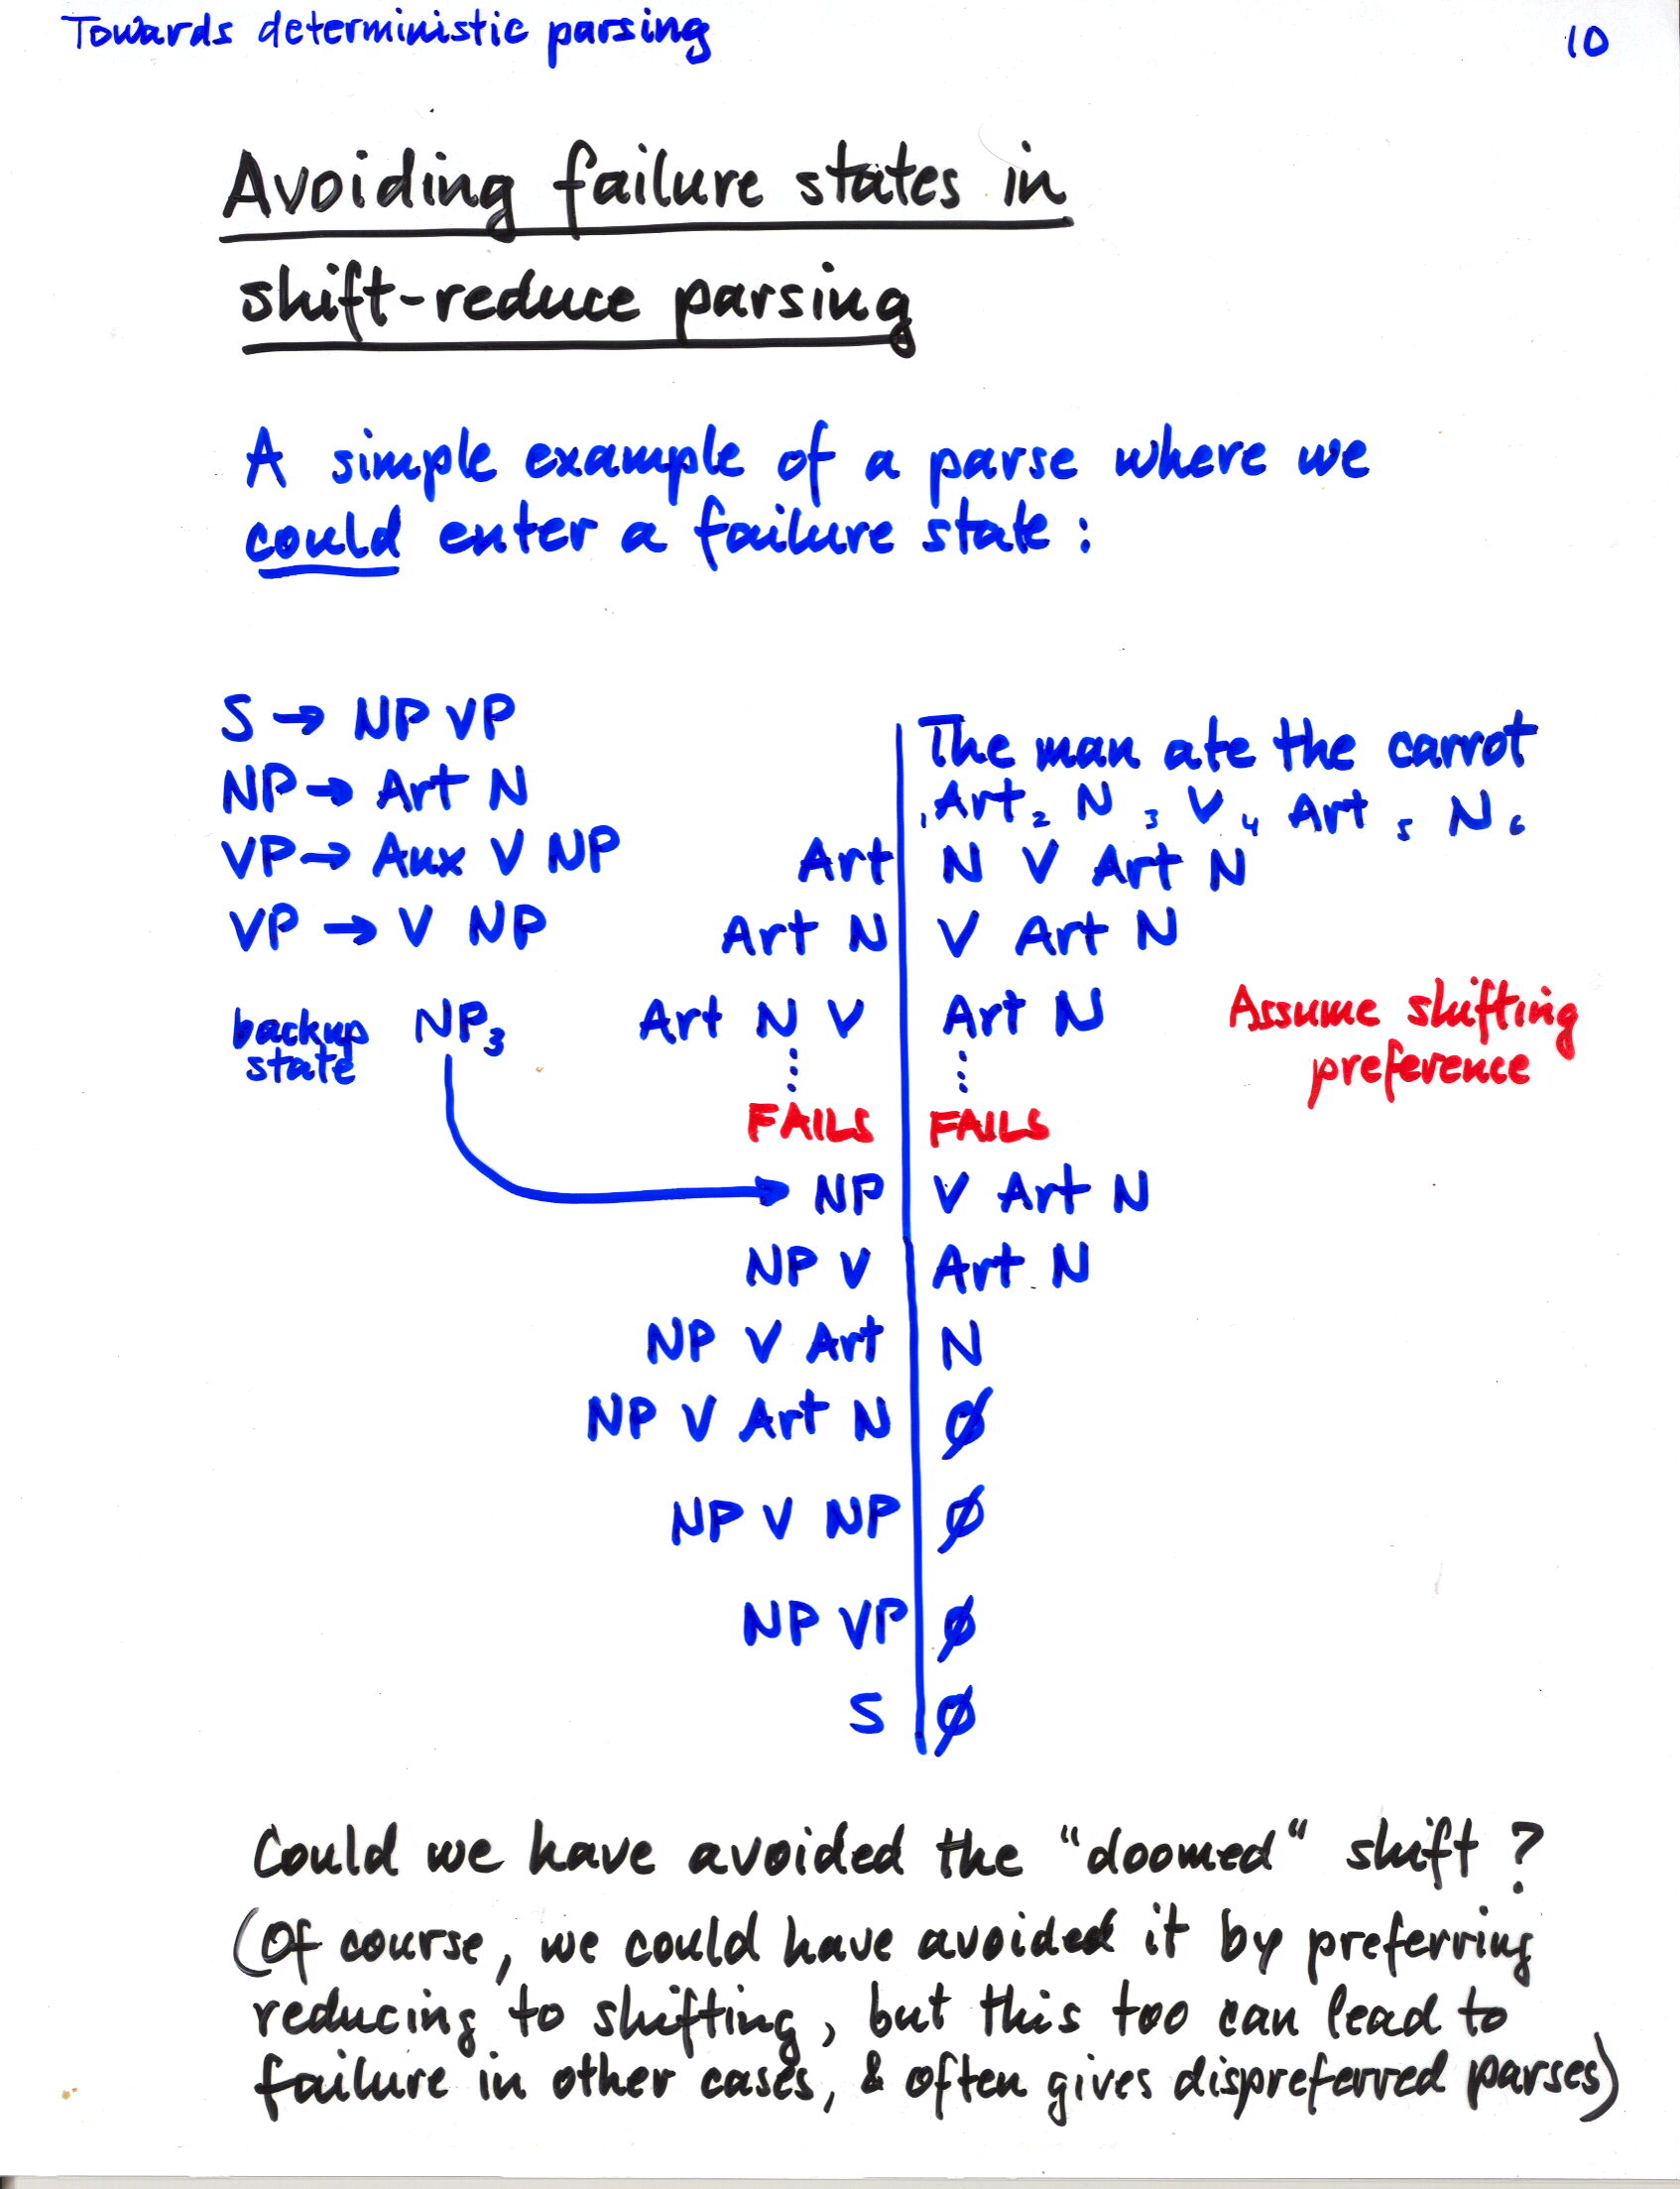 Towards deterministic parsing 10
Avoiding failure states in
shift-reduce parsing
A simple example of a parse where we
could enter a failure state:
S → NP VP
NP → Art N
VP → Aux V NP
VP → V NP
The man ate the carrot
1 Art 2 N 3 V 4 Art 5 N 6
Art | N V Art N
Art N | V Art N
backup state NP3
Art N V | Art N
Assume shifting
preference
⋮ ⋮
FAILS | FAILS
NP | V Art N
NP V | Art N
NP V Art | N
NP V Art N | ∅
NP V NP | ∅
NP VP | ∅
S | ∅
Could we have avoided the "doomed" shift?
(Of course, we could have avoided it by preferring
reducing to shifting, but this too can lead to
failure in other cases, & often gives dispreferred parses)